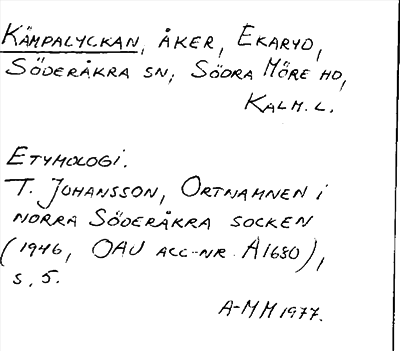 KÄMPALYCKAN, ÅKER, EKARYD,
SÖDERÅKRA SN, SÖDRA MÖRE HD,
KALM. L.
ETYMOLOGI.
T. JOHANSSON, ORTNAMNEN I
NORRA SÖDERÅKRA SOCKEN
(1946, OAU ACC-NR A1680),
s. 5.
A-MM 1977.